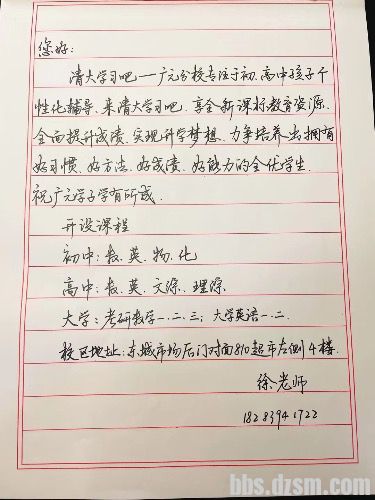 您好:
清大学习吧一广元分校专注于初、高中孩子个
性化辅导、来清大学习吧、享全新课标教育资源、
全面提升成绩、实现升学梦想、力争培养出拥有
好习惯、好方法、好成绩、好能力的全优学生.
祝广元学子学有所成.
开设课程
初中:数、英、物、化
高中:数、英、文综、理综
大学:考研数学一.二.三;大学英语一.二.
校区地址:东城市场后门对面810超市左侧4楼.
徐老师
18283941722
bbs.dzsm.com